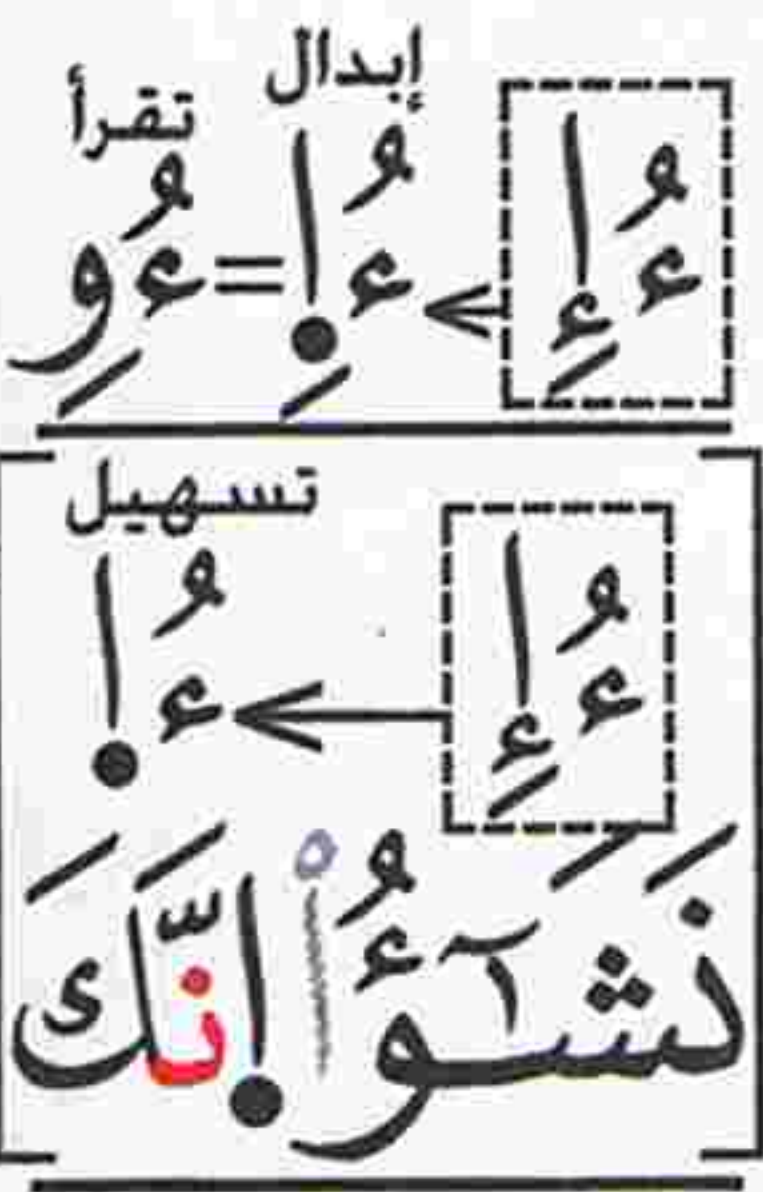 إبدال تقرأ
ءُ إِ < ءُ اِ = ءُ وِ
تسهيل
ءُ إِ ← ءُ ا
نَشَـٰٓؤُا۟ اِنَّكَ